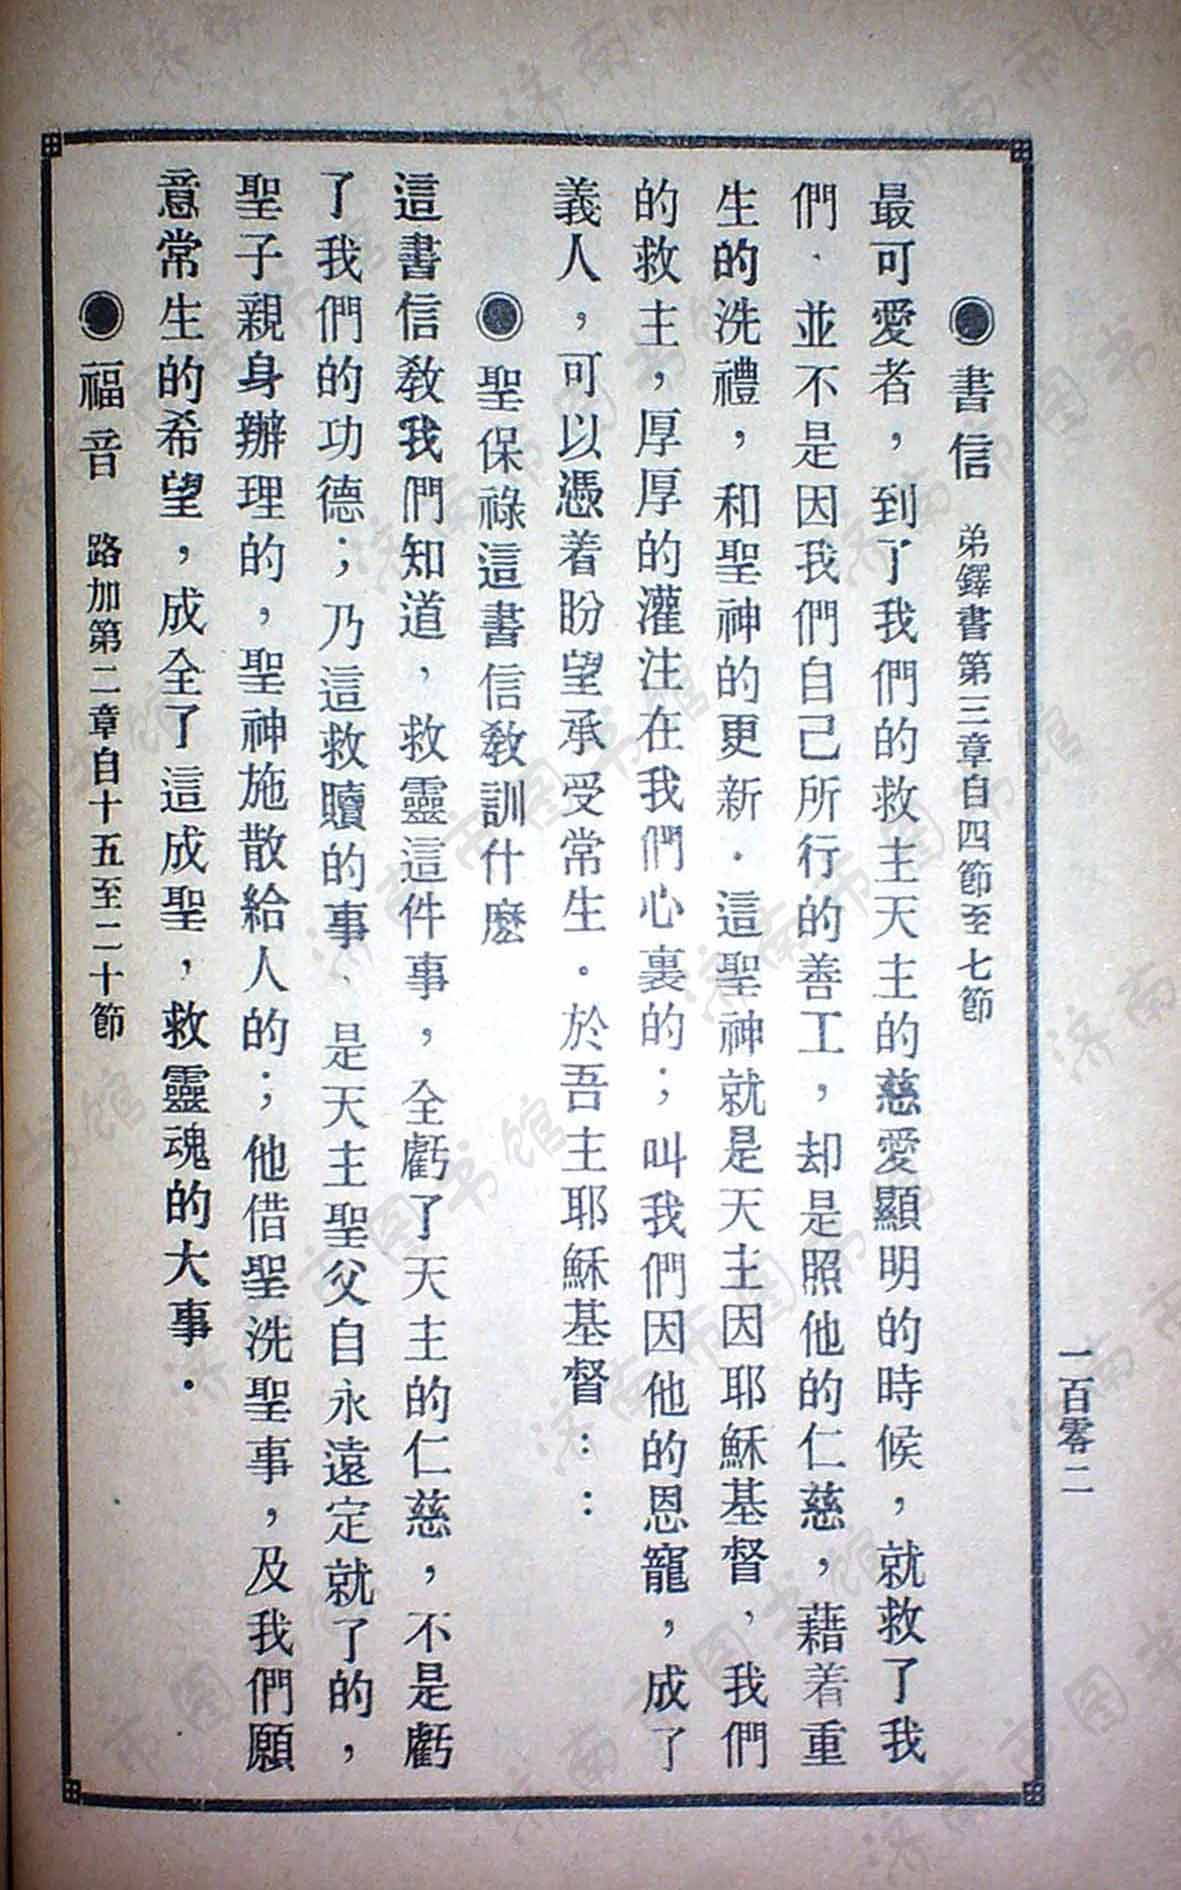 一百零二
◉書信 弟鐸書第三章自四節至七節
最可愛者，到了我們的救主天主的慈愛顯明的時候，就救了我
們．並不是因我們自己所行的善工，却是照他的仁慈，藉着重
生的洗禮，和聖神的更新．這聖神就是天主因耶穌基督，我們
的救主，厚厚的灌注在我們心裏的；叫我們因他的恩寵，成了
義人，可以憑着盼望承受常生．於吾主耶穌基督：：
◉聖保祿這書信敎訓什麽
這書信敎我們知道，救靈這件事，全虧了天主的仁慈，不是虧
了我們的功德；乃這救贖的事、是天主聖父自永遠定就了的，
聖子親身辦理的，聖神施散給人的；他借聖洗聖事，及我們願
意常生的希望，成全了這成聖，救靈魂的大事．
◉福音 路加第二章自十五至二十節
济南市图书馆